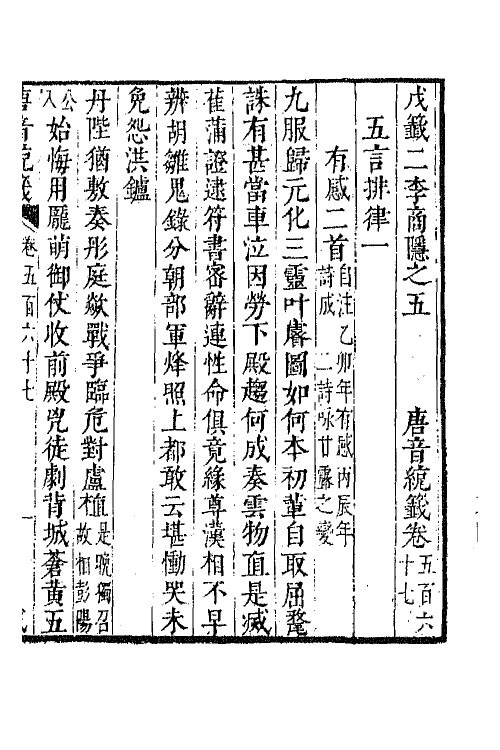 戊籤二李商隱之五　唐音統籤卷五百六十七
五言排律一
有感二首自注乙卯年有感丙辰年詩成　二詩咏甘露之變
九服歸元化三靈叶睿圖如何本初輩自取屈氂
誅有甚當車泣因勞下殿趨何成奏雲物直是滅
萑蒲證逮符書密辭連性命俱竟緣尊漢相不早
辨胡雛鬼錄分朝部軍烽照上都敢云堪慟哭未
免怨洪鑪
丹陛猶敷奏彤庭歘戰爭臨危對盧植是晚獨召故相彭陽
公入始悔用龐萌御仗收前殿兇徒劇背城蒼黃五
唐音統籤　卷五百六十七　一